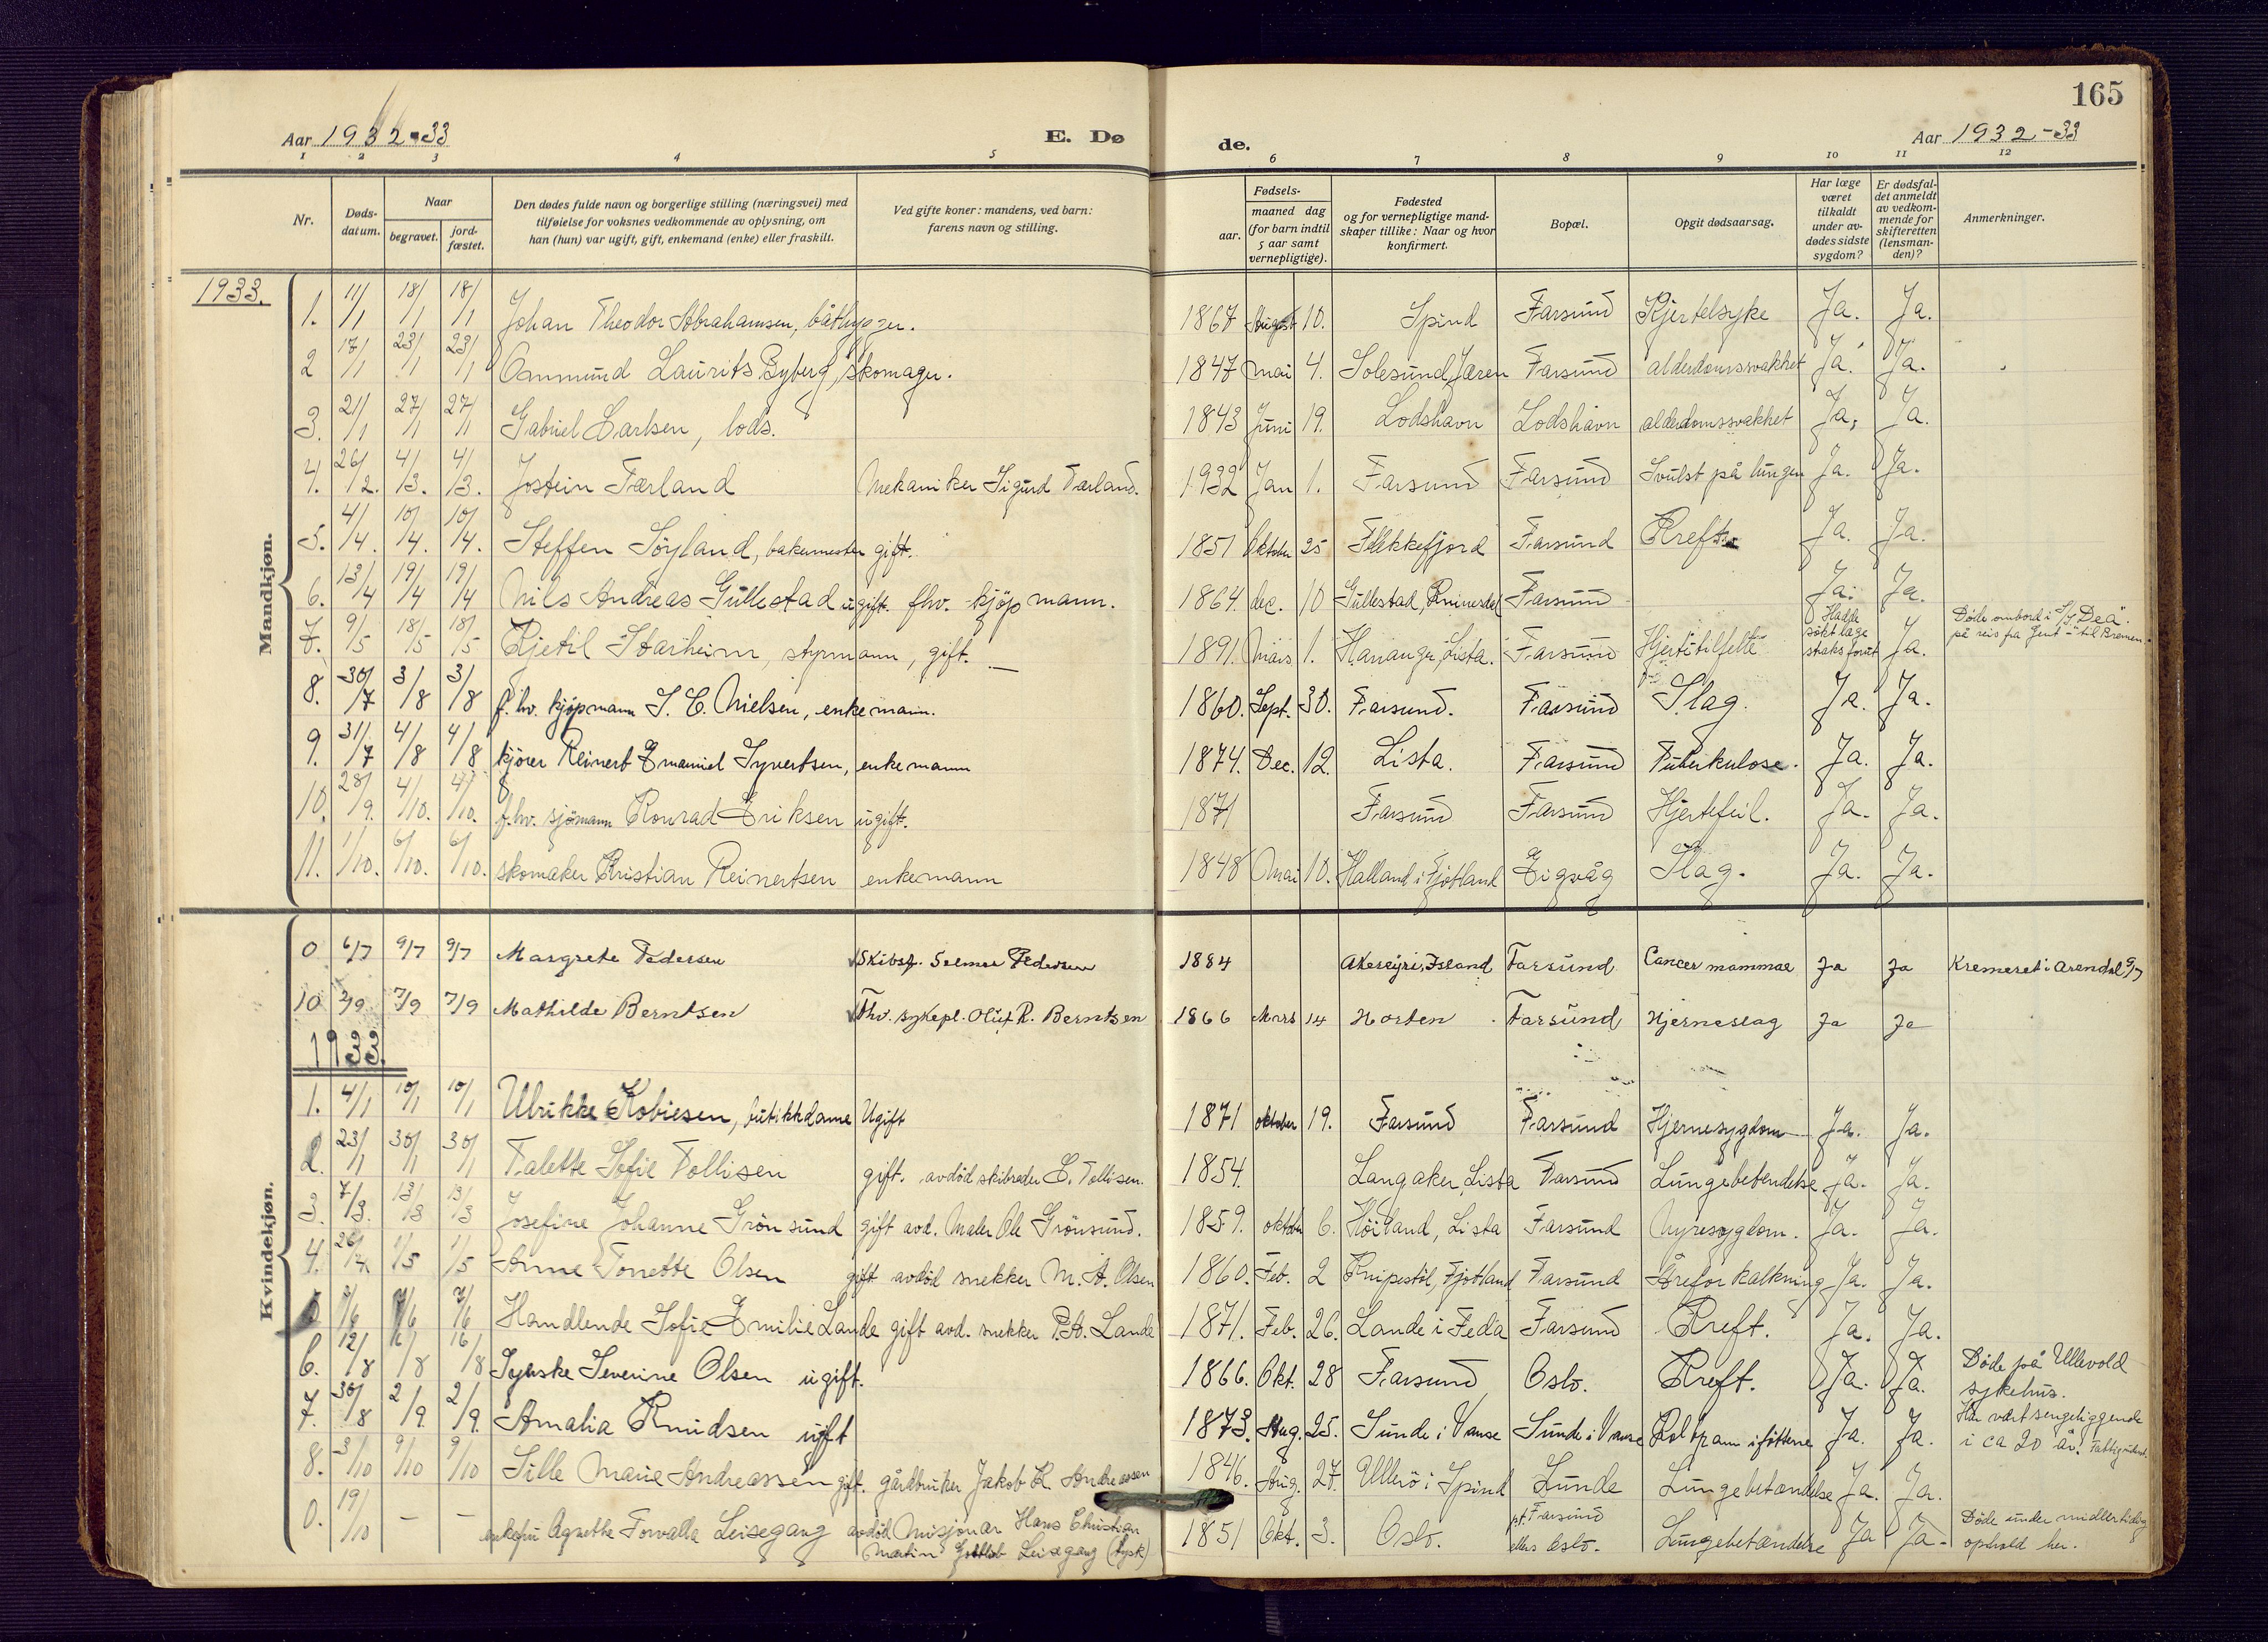 165
Aar 1932-33
E. Døde.
Aar 1932-33
1 2 3 4 5 6 7 8 9 10 11 12
Nr.
Døds-datum.
Naar
begravet.
jord-fæstet.
Den dødes fulde navn og borgerlige stilling (næringsvei) med
tilføielse for voksnes vedkommende av oplysning, om
han (hun) var ugift, gift, enkemand (enke) eller fraskilt.
Ved gifte koner: mandens, ved barn:
farens navn og stilling.
Fødsels-
aar.
maaned dag
(for barn indtil
5 aar samt
vernepligtige).
Fødested
og for vernepligtige mand-
skaper tillike: Naar og hvor
konfirmert.
Bopæl.
Opgit dødsaarsag.
Har læge
været
tilkaldt
under av-
dødes sidste
sygdom?
Er dødsfal-
det anmeldt
av vedkom-
mende for
skifteretten
(lensman-
den)?
Anmerkninger.
Mandkjøn.
1933.
1. 11/1 18/1 18/1 Johan Theodor Abrahamsen, båtbygger. 1867 August 10. Spind Farsund Kjertelsyke Ja. Ja.
2 17/1 23/1 23/1 Ommund Laurits Byberg, skomager. 1847 mai 4. Solesund, Jæren Farsund alderdomssvakhet Ja. Ja.
3. 21/1 27/1 27/1 Gabriel Carlsen, lods. 1843 Juni 19. Lodshavn Lodshavn alderdomssvakhet Ja, Ja.
4. 26/2. 4/3. 4/3. Jostein Færland Mekaniker Sigurd Færland. 1932 Jan 1. Farsund Farsund Svulst på lungen Ja. Ja.
5. 4/4. 10/4. 10/4. Steffen Söyland, bakermester gift. 1851 Oktober 25 Flekkefjord Farsund Kreft. Ja. Ja.
6. 13/4 19/4 19/4 Nils Andreas Gullestad ugift. fhv. kjöpmann. 1864. dec. 10 Gullestad, Kvinesdal Farsund Ja. Ja.
7. 9/5 18/5 18/5 Kjetil Starheim, styrmann, gift. 1891. Mars 1. Hananger, Lista. Farsund Hjertetilfelle Hadde sökt læge straks forut Ja. Döde ombord i S/S "Dea"
på reis fra Gent til Bremen.
8. 30/7 3/8 3/8 f.hv. kjöpmann S. C. Nielsen, enkemann. 1860. Sept. 30. Farsund. Farsund Slag. Ja. Ja.
9. 31/7 4/8 4/8 kjörer Reinert Emanuel Syvertsen, enkemann 1874. Dec. 12. Lista. Farsund Tuberkulose. Ja. Ja.
10. 28/9. 4/10. 4/10. f.hv. sjömann Konrad Eriksen ugift. 1871 Farsund Farsund Hjertefeil. Ja. Ja.
11. 1/10. 6/10. 6/10. skomaker Kristian Reinertsen enkemann 1848 Mai 10. Halland i Fjotland Eigvåg Slag. Ja. Ja.
Kvindekjøn.
0 6/7 9/7 9/7 Margrete Pedersen Skibsf. Selmer Pedersen 1884 Akereyri, Island Farsund Cancer mammae Ja Ja Kremeret i Arendal 9/7
10 2/9 7/9 7/9 Mathilde Berntsen Fhv. sykepl. Oluf R. Berntsen 1866 Mars 14 Horten Farsund Hjerneslag Ja Ja
1933.
1. 4/1 10/1 10/1 Ulrikke Kobiesen, butikkdame Ugift 1871 oktober 19. Farsund Farsund Hjernesygdom Ja. Ja.
2. 23/1 30/1 30/1 Talette Sofie Tollisen gift. avdöd skibsreder E. Tollisen. 1854. Langaker, Lista Farsund Lungebetendelse Ja. Ja.
3. 7/3. 13/3 13/3 Josefine Johanne Grönsund gift avd. Maler Ole Grönsund. 1859. oktober 6. Höiland, Lista Farsund Nyresygdom. Ja. Ja.
4. 26/4 1/5 1/5 Anne Tonette Olsen gift avdöd snekker M. A. Olsen 1860. Feb. 2 Knipestöl, Fjotland Farsund Åreforkalkning Ja. Ja.
7/6 7/6 Handlende Sofie Emilie Lande gift avd. snekker P. A. Lande 1871. Feb. 26. Lande i Feda Farsund Kreft. Ja. Ja.
6. 12/8 16/8 16/8 Syerske Severine Olsen ugift. 1866. Okt. 28 Farsund Oslo. Kreft. Ja. Ja. Döde på Ullevold
sykehus.
7. 30/8 2/9. 2/9. Amalia Knudsen ugift 1873. Aug. 25. Sunde i Vanse Sunde i Vanse Koldbrann i föttene Ja. Ja. Har vært sengeliggende
i ca 20 år.
8. 3/10 9/10 9/10 Sille Marie Andreassen gift. gårdbruker Jakob K. Andreassen 1846. Aug. 27. Ullerö i Spind Lunde Lungebetændelse Ja. Ja.
0. 19/10 - - enkefru Agnethe Torvalla Leisegang avdöd Misjonær Hans Christian
Martin Gottlob Leisegang (tysk) 1851 Okt. 3. Oslo. pt. Farsund
ellers Oslo. Lungebetændelse Ja Ja. Döde under midlertidig
ophold her.